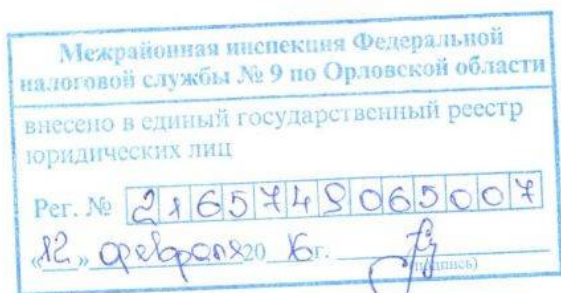 Межрайонная инспекция Федеральной
налоговой службы № 9 по Орловской области
внесено в единый государственный реестр
юридических лиц
Рег. № 2165749065007
«12» февраля 2016г.
(подпись)